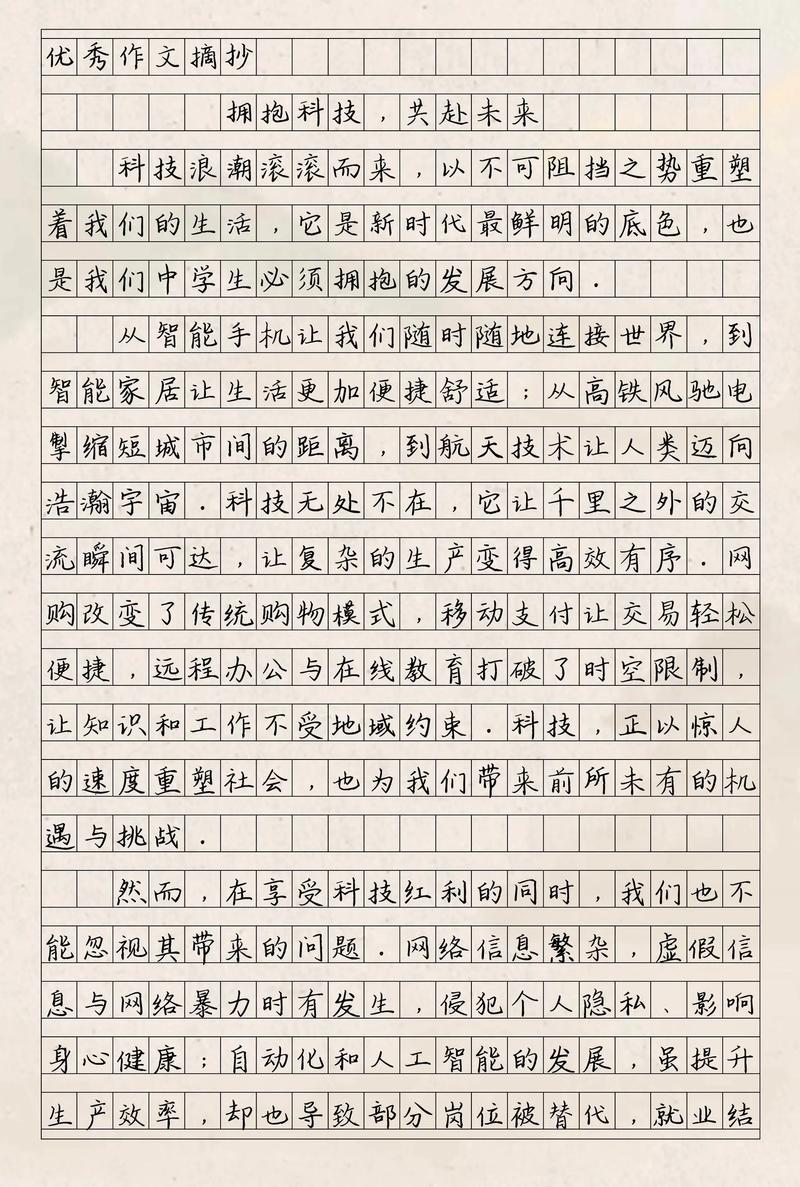 优秀作文摘抄
拥抱科技，共赴未来
科技浪潮滚滚而来，以不可阻挡之势重塑
着我们的生活，它是新时代最鲜明的底色，也
是我们中学生必须拥抱的发展方向．
从智能手机让我们随时随地连接世界，到
智能家居让生活更加便捷舒适；从高铁风驰电
掣缩短城市间的距离，到航天技术让人类迈向
浩瀚宇宙．科技无处不在，它让千里之外的交
流瞬间可达，让复杂的生产变得高效有序．网
购改变了传统购物模式，移动支付让交易轻松
便捷，远程办公与在线教育打破了时空限制，
让知识和工作不受地域约束．科技，正以惊人
的速度重塑社会，也为我们带来前所未有的机
遇与挑战．
然而，在享受科技红利的同时，我们也不
能忽视其带来的问题．网络信息繁杂，虚假信
息与网络暴力时有发生，侵犯个人隐私、影响
身心健康；自动化和人工智能的发展，虽提升
生产效率，却也导致部分岗位被替代，就业结